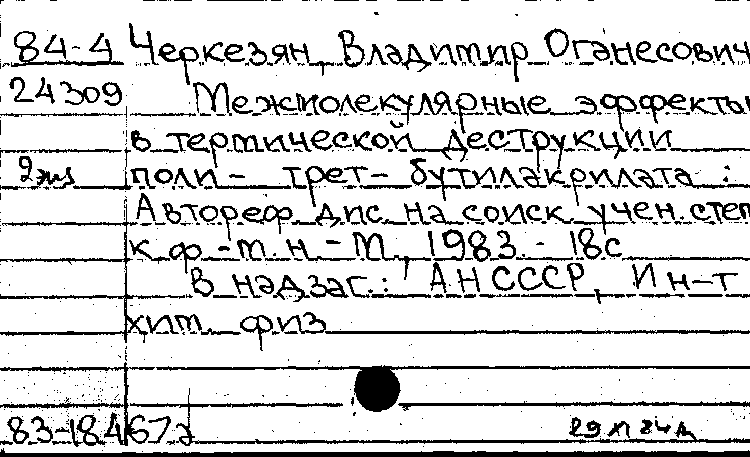 84-4 Черкезян, Владимир Оганесович
24309 Межмолекулярные эффекты
в термической деструкции
2 экз поли- трет-бутилакрилата :
Автореф. дис. на соиск. учен. степ.
к. ф.-м. н. - М., 1983. - 18с
В надзаг.: АН СССР, Ин-т
хим. физ
83-18467а